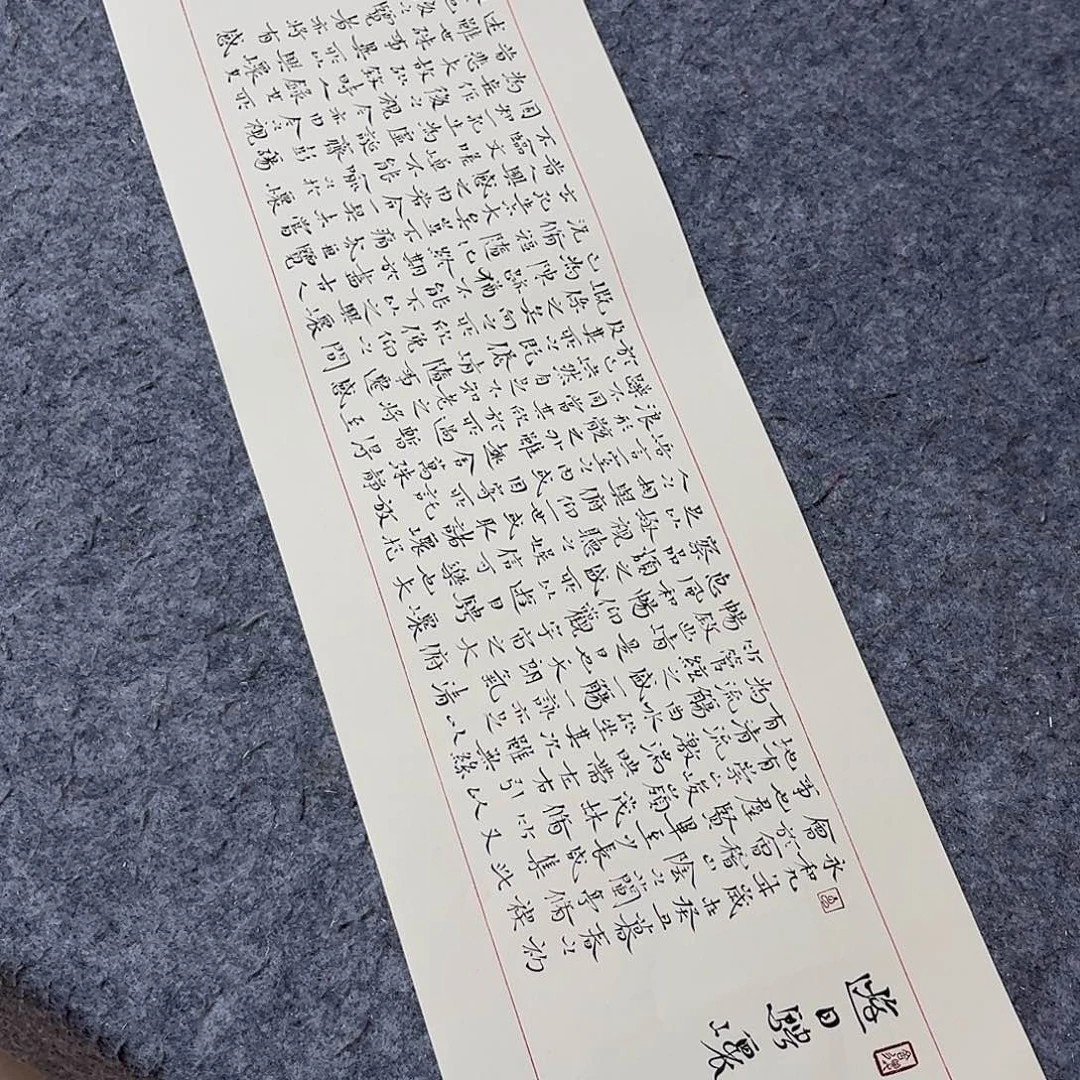 遊目騁懷
永和九年歲在癸丑暮春之初
會於會稽山陰之蘭亭脩禊
事也羣賢畢至少長咸集此
地有崇山峻嶺茂林脩竹又
有清流激湍映帶左右引以
為流觴曲水列坐其次雖無絲
竹管絃之盛一觴一詠亦足以
暢敘幽情是日也天朗氣清
惠風和暢仰觀宇宙之大俯
察品類之盛所以遊目騁懷
足以極視聽之娛信可樂也夫
人之相與俯仰一世或取諸懷抱
悟言一室之內或因寄所託放
浪形骸之外雖趣舍萬殊靜
躁不同當其欣於所遇暫得
於己怏然自足不知老之將至
及其所之既倦情隨事遷感
慨係之矣向之所欣俛仰之間
已為陳跡猶不能不以之興懷
況脩短隨化終期於盡古人
云死生亦大矣豈不痛哉每覽
昔人興感之由若合一契未嘗
不臨文嗟悼不能喻之於懷
固知一死生為虛誕齊彭殤
為妄作後之視今亦由今之視
昔悲夫故列敘時人錄其所
述雖世殊事異所以興懷其
也後之覽者亦將有感